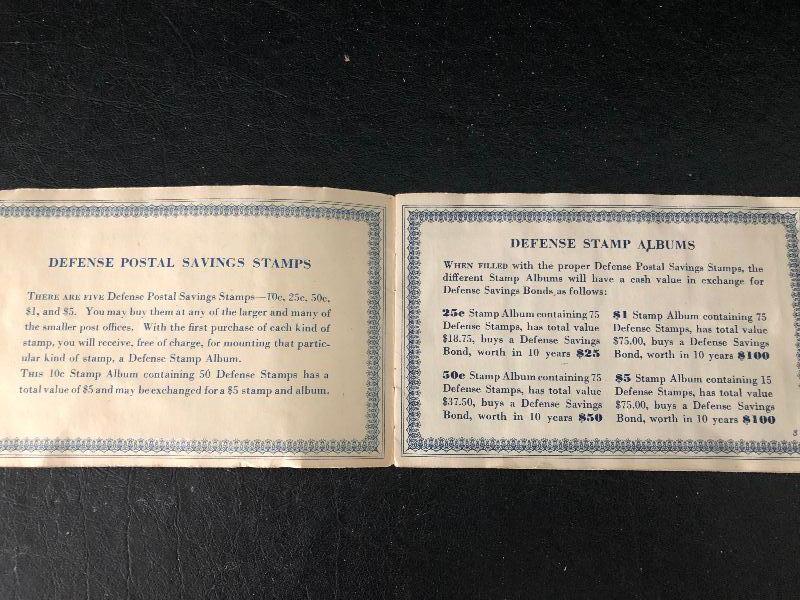 DEFENSE POSTAL SAVINGS STAMPS
THERE ARE FIVE Defense Postal Savings Stamps—10c, 25c, 50c,
$1, and $5. You may buy them at any of the larger and many of
the smaller post offices. With the first purchase of each kind of
stamp, you will receive, free of charge, for mounting that partic-
ular kind of stamp, a Defense Stamp Album.
THIS 10c Stamp Album containing 50 Defense Stamps has a
total value of $5 and may be exchanged for a $5 stamp and album.
DEFENSE STAMP ALBUMS
WHEN FILLED with the proper Defense Postal Savings Stamps, the
different Stamp Albums will have a cash value in exchange for
Defense Savings Bonds as follows:
25c Stamp Album containing 75
Defense Stamps, has total value
$18.75, buys a Defense Savings
Bond, worth in 10 years $25
50c Stamp Album containing 75
Defense Stamps, has total value
$37.50, buys a Defense Savings
Bond, worth in 10 years $50
$1 Stamp Album containing 75
Defense Stamps, has total value
$75.00, buys a Defense Savings
Bond, worth in 10 years $100
$5 Stamp Album containing 15
Defense Stamps, has total value
$75.00, buys a Defense Savings
Bond, worth in 10 years $100